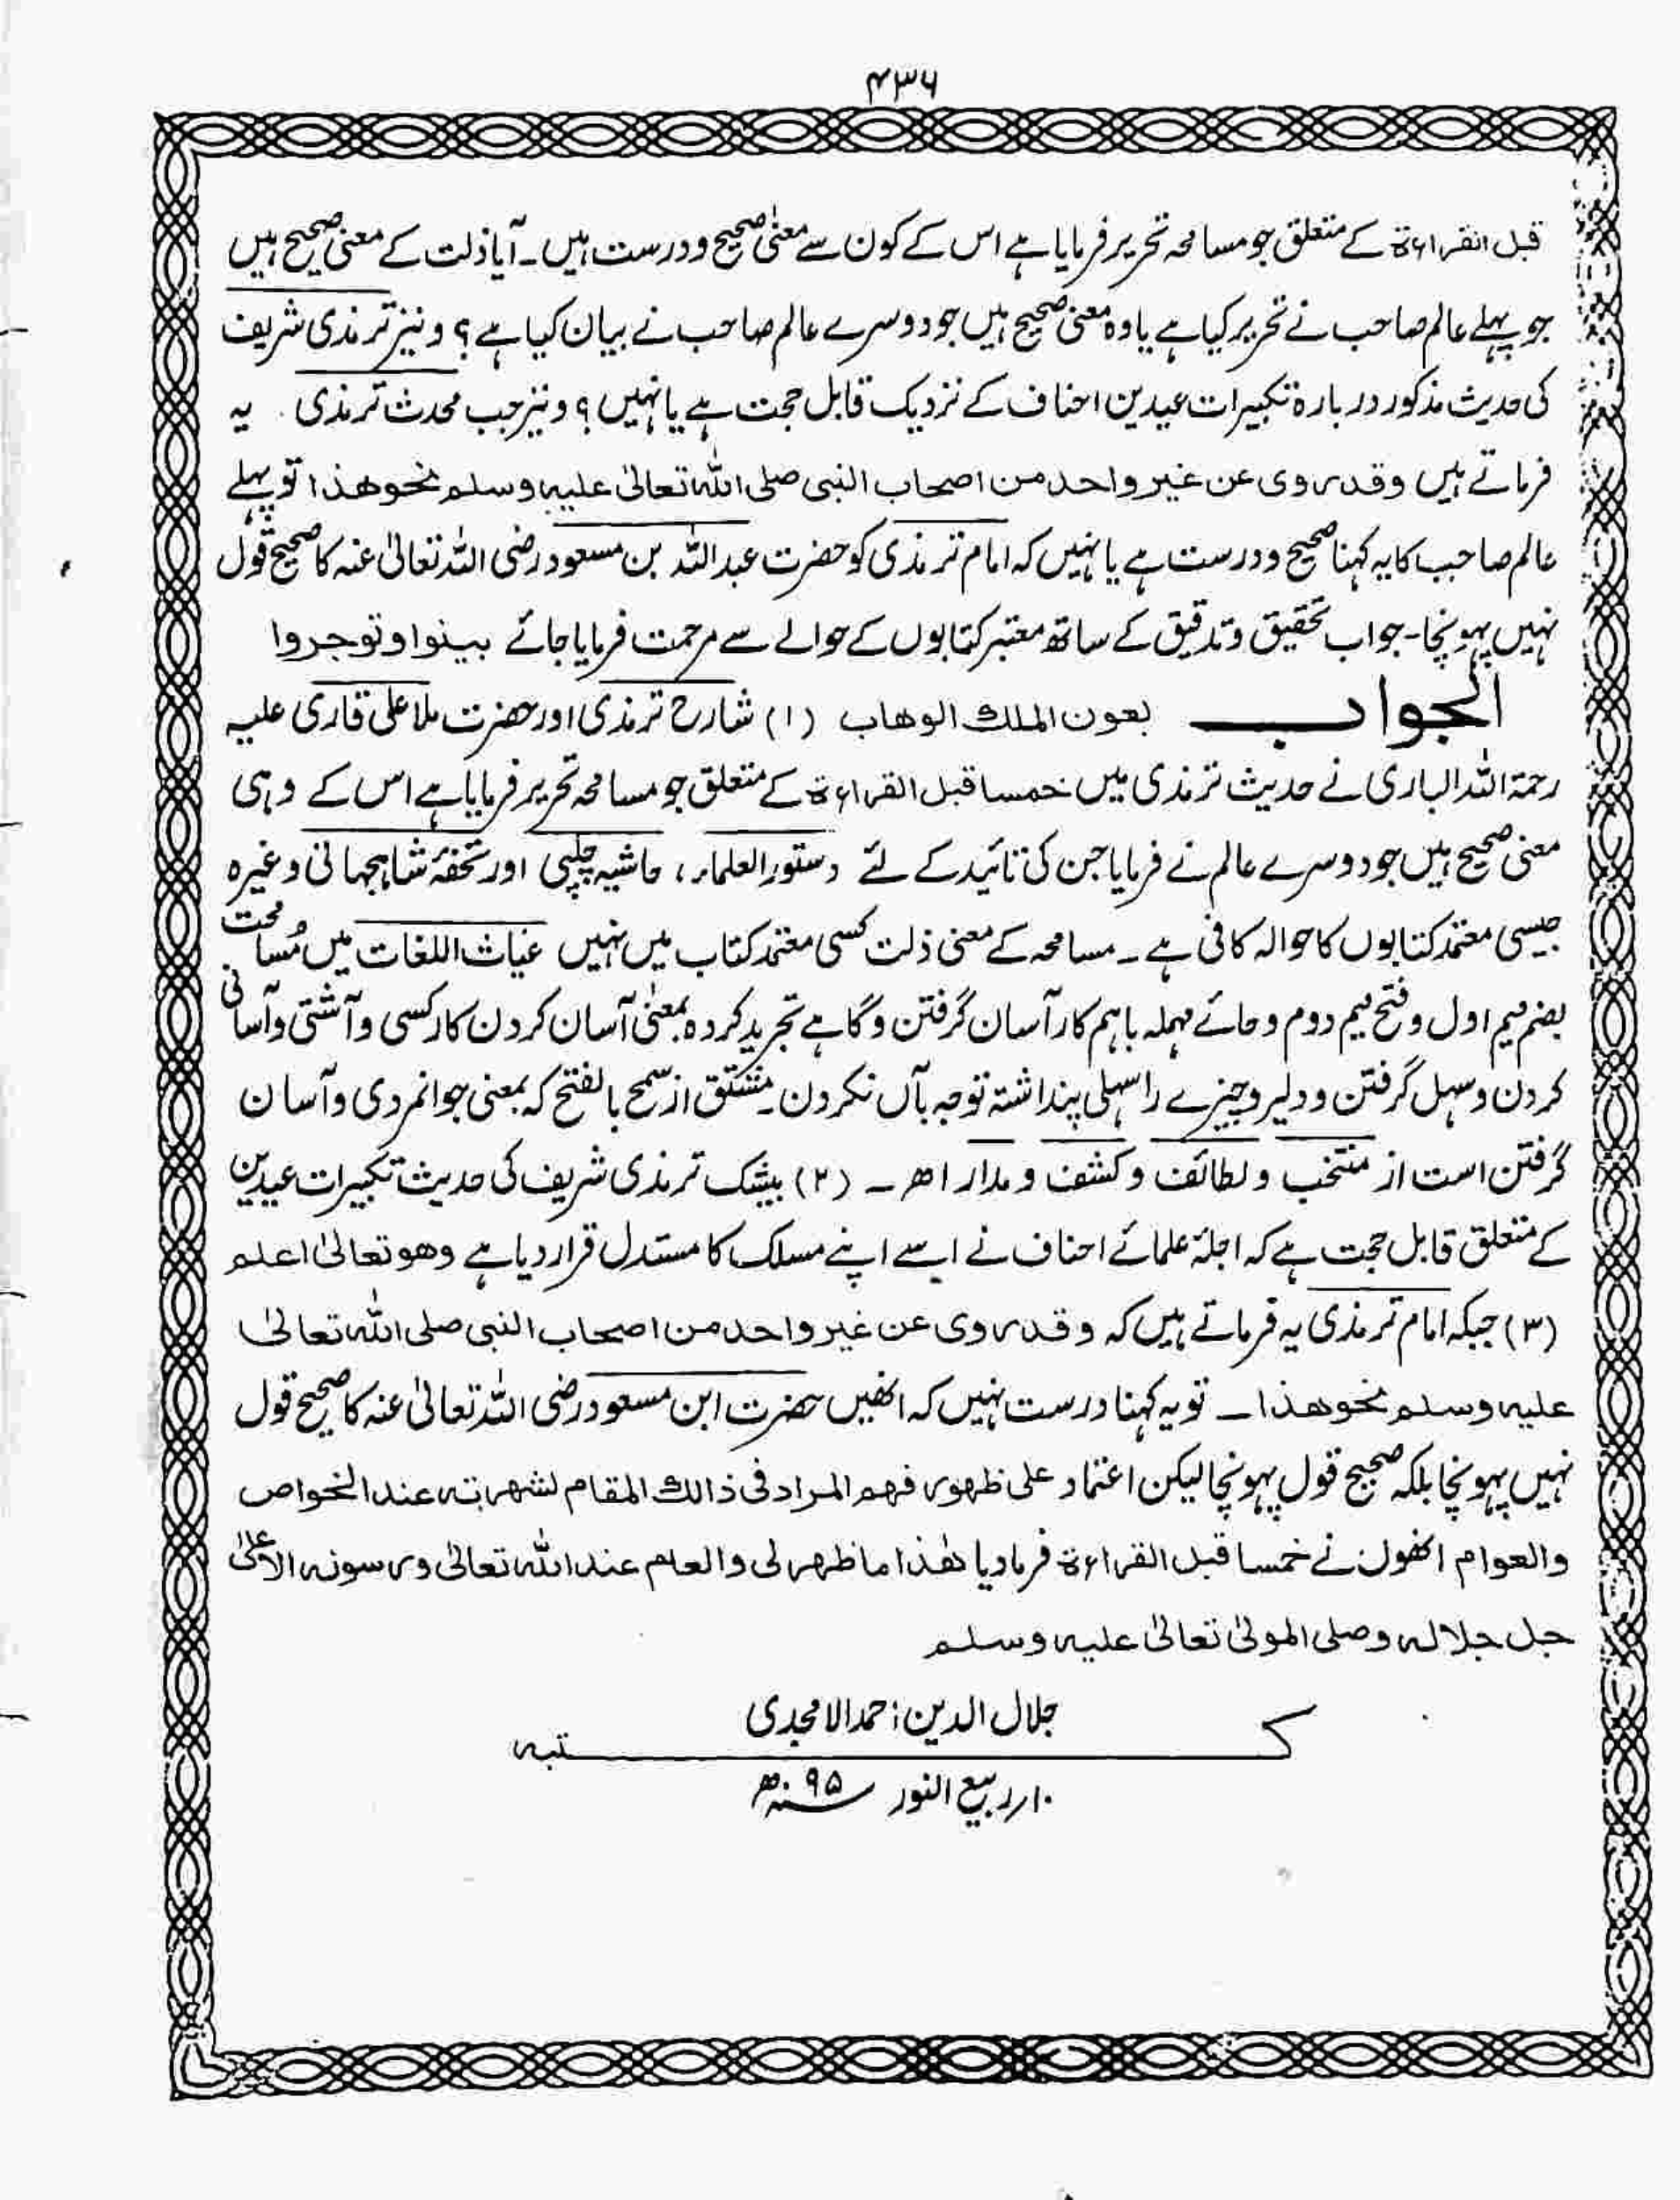 ۴۳۶
قبل القراءۃ کے متعلق جو مسامحہ تحریر فرمایا ہے اس کے کون سے معنٰی صحیح و درست ہیں۔ آیا ذلت کے معنی صحیح ہیں
جو پہلے عالم صاحب نے تحریر کیا ہے یا وہ معنی صحیح ہیں جو دوسرے عالم صاحب نے بیان کیا ہے؟ و نیز ترمذی شریف
کی حدیث مذکور در بارہ تکبیرات عیدین احناف کے نزدیک قابل حجت ہے یا نہیں؟ و نیز جب محدث ترمذی یہ
فرماتے ہیں وقد روی عن غیر واحد من اصحاب النبی صلی اللہ تعالیٰ علیہ وسلم نحو ھذا تو پہلے
عالم صاحب کا یہ کہنا صحیح و درست ہے یا نہیں کہ امام ترمذی کو حضرت عبد اللہ بن مسعود رضی اللہ تعالیٰ عنہ کا صحیح قول
نہیں پہونچا۔ جواب تحقیق و تدقیق کے ساتھ معتبر کتابوں کے حوالے سے مرحمت فرمایا جائے بینوا و توجروا
الجواب بعون الملك الوھاب (۱) شارح ترمذی اور حضرت ملا علی قاری علیہ
رحمۃ اللہ الباری نے حدیث ترمذی میں خمسا قبل القراءۃ کے متعلق جو مسامحہ تحریر فرمایا ہے اس کے وہی
معنی صحیح ہیں جو دوسرے عالم نے فرمایا جن کی تائید کے لئے دستور العلماء، حاشیہ چلپی اور تحفۂ شاہجہانی وغیرہ
جیسی معتمد کتابوں کا حوالہ کافی ہے۔ مسامحہ کے معنی ذلت کسی معتمد کتاب میں نہیں غیاث اللغات میں مُسامحت
بضم میم اول و فتح میم دوم و حائے مہملہ باہم کار آسان گرفتن و گاہے تجرید کردہ بمعنٰی آسان کردن کار کسی و آشتی و آسانی
کردن و سہل گرفتن و دلیر و چیزے را سہلی پنداشتہ توجہ بآں نکردن۔ مشتق از سمح بالفتح کہ بمعنی جوانمردی و آسان
گرفتن است از منتخب و لطائف و کشف و مدار اھ۔ (۲) بیشک ترمذی شریف کی حدیث تکبیرات عیدین
کے متعلق قابل حجت ہے کہ اجلۂ علمائے احناف نے اسے اپنے مسلک کا مستدل قرار دیا ہے وھو تعالیٰ اعلم
(۳) جبکہ امام ترمذی یہ فرماتے ہیں کہ وقد روی عن غیر واحد من اصحاب النبی صلی اللہ تعالیٰ
علیہ وسلم نحو ھذا۔ تو یہ کہنا درست نہیں کہ انھیں حضرت ابن مسعود رضی اللہ تعالیٰ عنہ کا صحیح قول
نہیں پہونچا بلکہ صحیح قول پہونچا لیکن اعتماد علی ظھور فھم المراد فی ذالك المقام لشھرتہ عند الخواص
والعوام انھوں نے خمسا قبل القراءۃ فرما دیا ھٰذا ما ظھر لی والعلم عند اللہ تعالیٰ ورسولہ الاعلیٰ
جل جلالہ وصلی المولیٰ تعالیٰ علیہ وسلم
جلال الدین احمد الامجدی
کتبہ
۱۰؍ ربیع النور ۹۵ھ